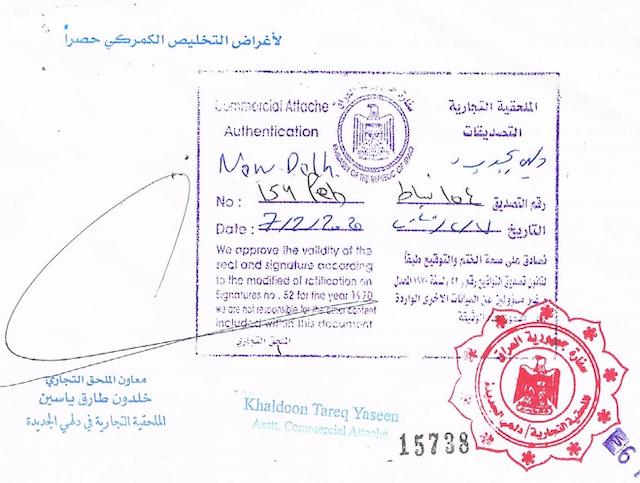 لأغراض التخليص الكمركي حصراً
Commercial Attache
Authentication
سفارة جمهورية العراق
EMBASSY OF THE REPUBLIC OF IRAQ
الملحقية التجارية
التصديقات
New Delh.
No : 154
رقم التصديق
Date : 7/2/2020
التاريخ
We approve the validity of the
seal and signature according
to the modified of ratification on
Signatures no . 52 for the year 1970
we are not responsible for the other content
included within this document
نصادق على صحة الختم والتوقيع طبقاً
لقانون تصديق التواقيع رقم ٥٢ لسنة ١٩٧٠ المعدل
غير مسؤولين عن البيانات الاخرى الواردة
الوثيقة
الملحق التجاري
معاون الملحق التجاري
خلدون طارق ياسين
الملحقية التجارية في دلهي الجديدة
Khaldoon Tareq Yaseen
Asstt. Commercial Attaché
15738
سفارة جمهورية العراق
الملحقية التجارية / دلهي الجديدة